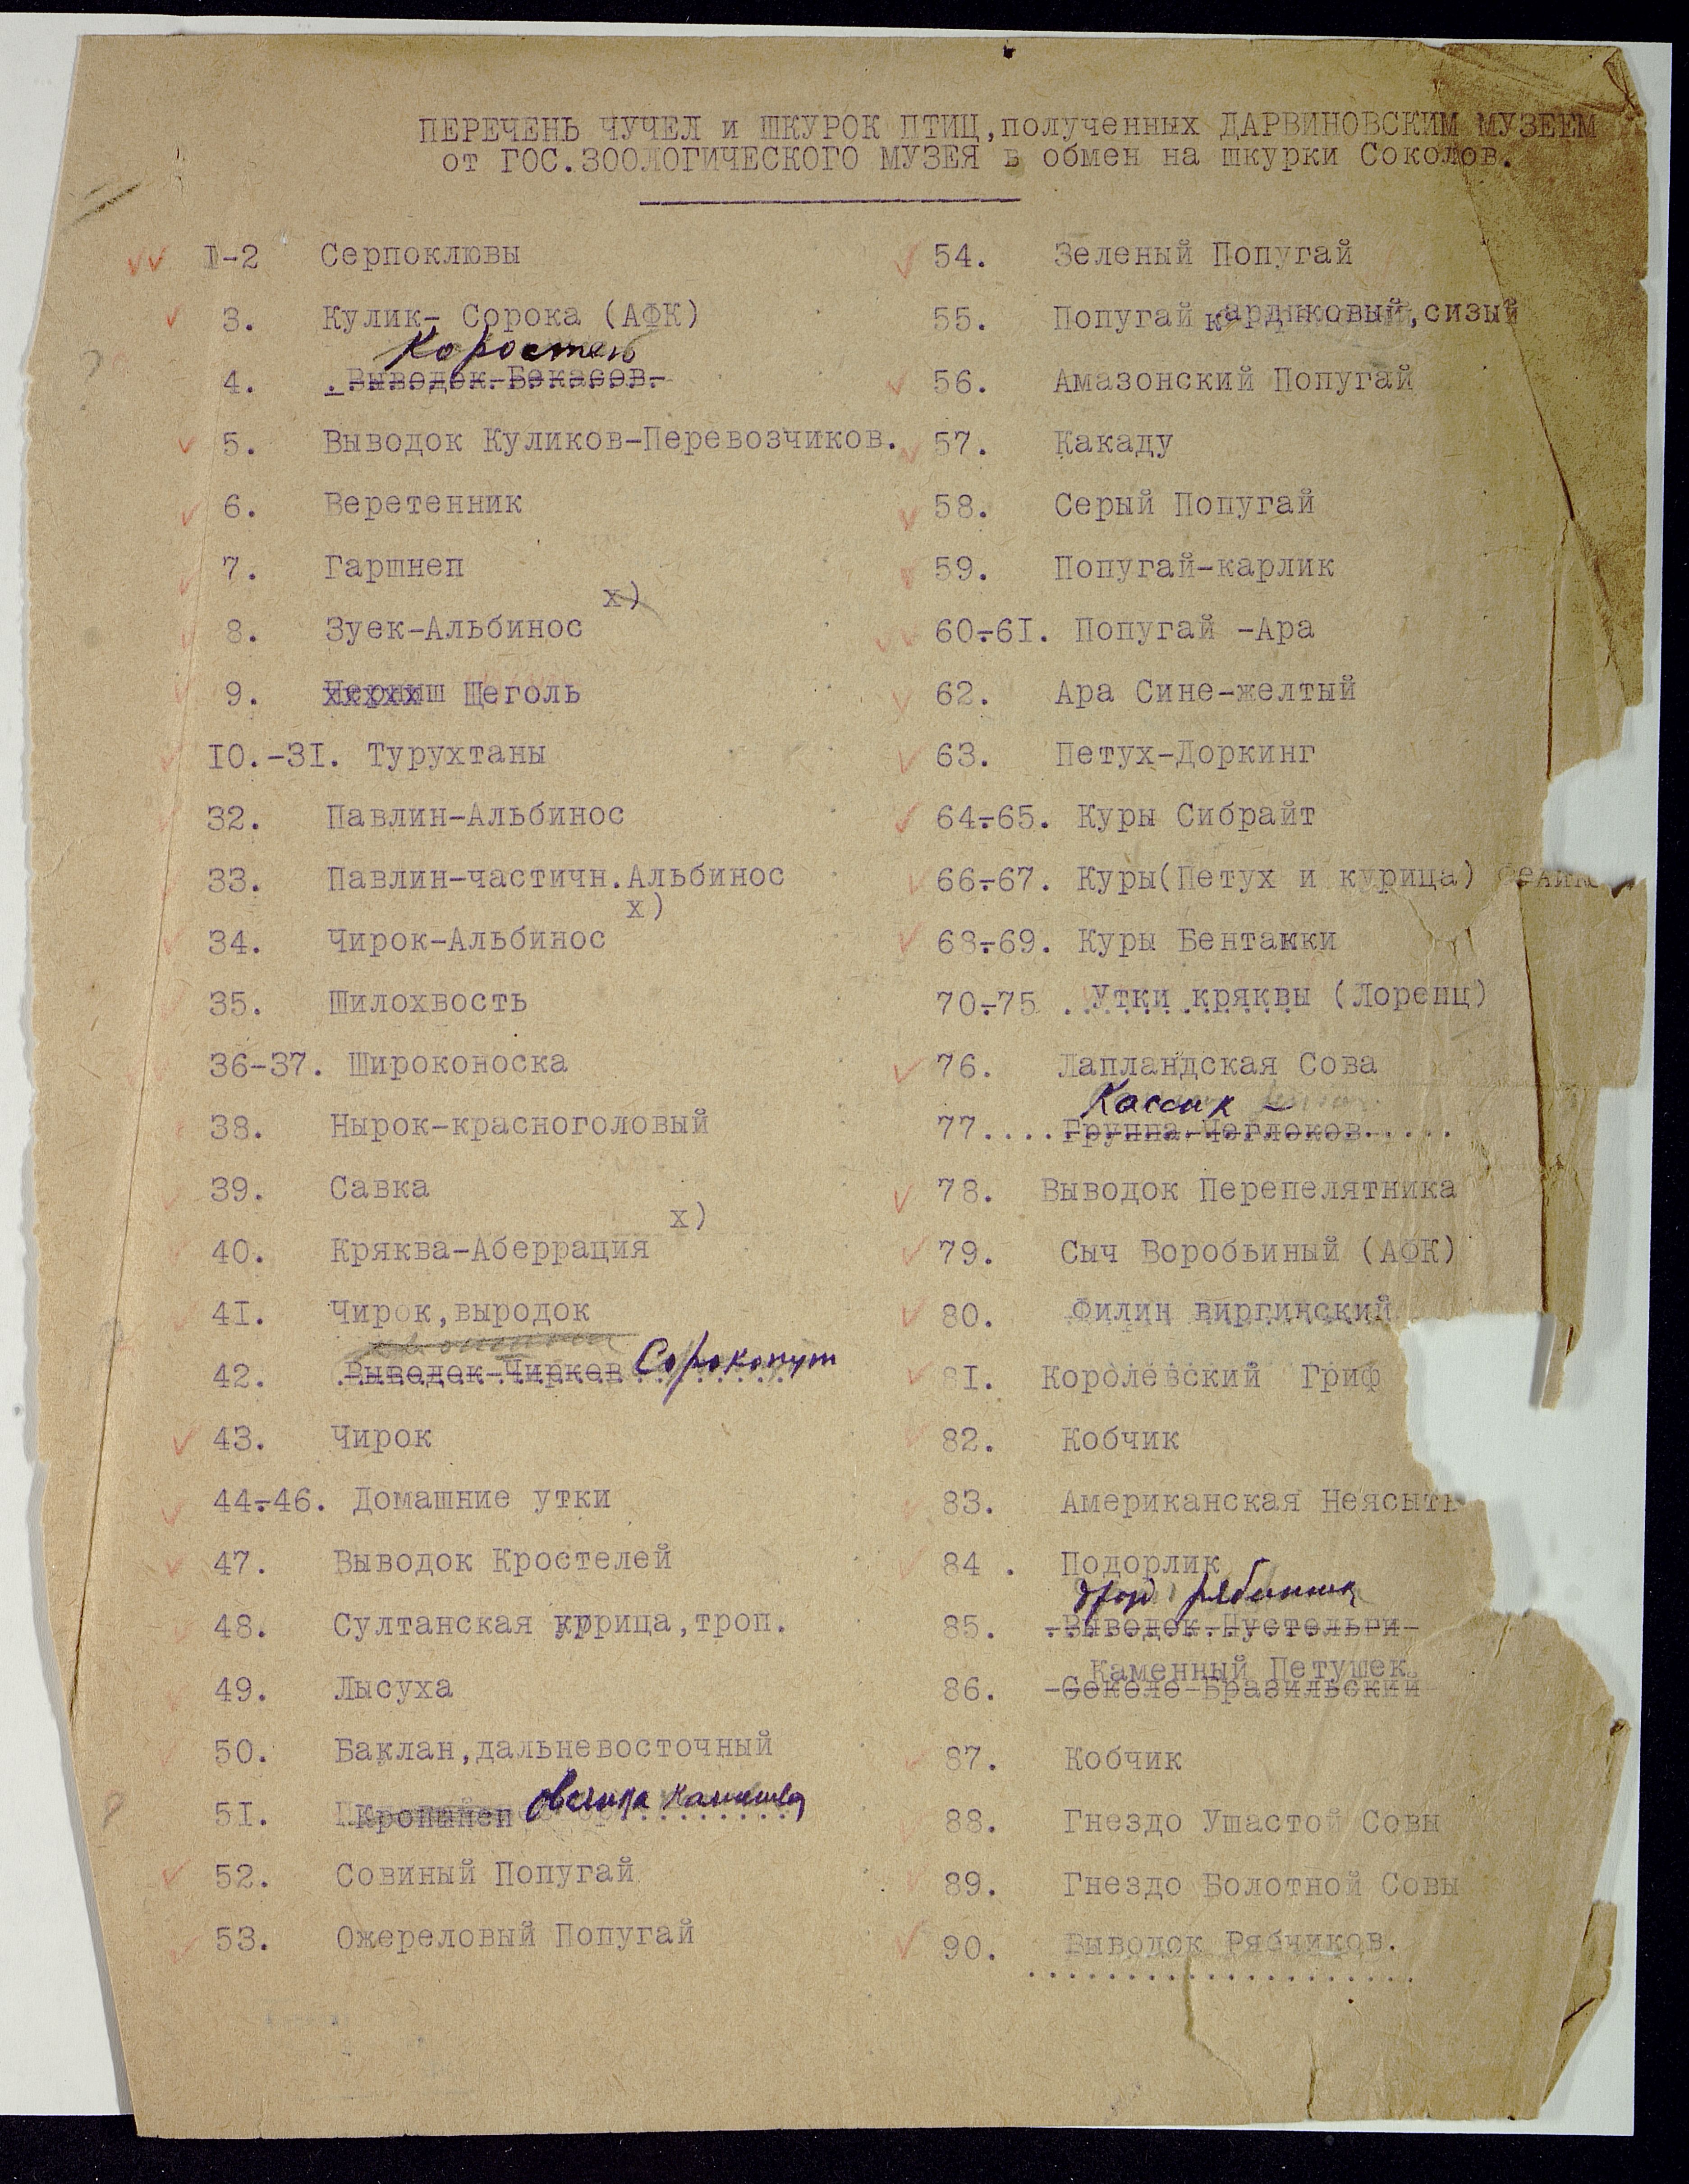 ПЕРЕЧЕНЬ ЧУЧЕЛ и ШКУРОК ПТИЦ, полученных ДАРВИНОВСКИМ МУЗЕЕМ
от ГОС.ЗООЛОГИЧЕСКОГО МУЗЕЯ в обмен на шкурки Соколов.
I-2 Серпоклювы
3. Кулик- Сорока (АФК)
Коростель
4. Выводок Бекасов.
5. Выводок Куликов-Перевозчиков.
6. Веретенник
7. Гаршнеп
х)
8. Зуек-Альбинос
9. Черныш Щеголь
I0.-3I. Турухтаны
32. Павлин-Альбинос
33. Павлин-частичн.Альбинос
х)
34. Чирок-Альбинос
35. Шилохвость
36-37. Широконоска
38. Нырок-красноголовый
39. Савка
х)
40. Кряква-Аберрация
4I. Чирок,выродок
42. Выводок Чирков Сорокопут
43. Чирок
44.-46. Домашние утки
47. Выводок Кростелей
48. Султанская курица,троп.
49. Лысуха
50. Баклан,дальневосточный
5I. Кроншнеп Овсянка камышев
52. Совиный Попугай
53. Ожереловый Попугай
54. Зеленый Попугай
55. Попугай кардиковый,сизый
56. Амазонский Попугай
57. Какаду
58. Серый Попугай
59. Попугай-карлик
60.-6I. Попугай -Ара
62. Ара Сине-желтый
63. Петух-Доркинг
64.-65. Куры Сибрайт
66.-67. Куры(Петух и курица)
68.-69. Куры Бентамки
70.-75 Утки кряквы (Лоренц)
76. Лапландская Сова
Кассик
77.... Группа Чеглоков.....
78. Выводок Перепелятника
79. Сыч Воробьиный (АФК)
80. Филин виргинский
8I. Королевский Гриф
82. Кобчик
83. Американская Неясыть
84 . Подорлик
дрозд рябинник
85. Выводок Пустельги
Каменный Петушек
86. Соколо Бразильский
87. Кобчик
88. Гнездо Ушастой Совы
89. Гнездо Болотной Совы
90. Выводок Рябчиков.